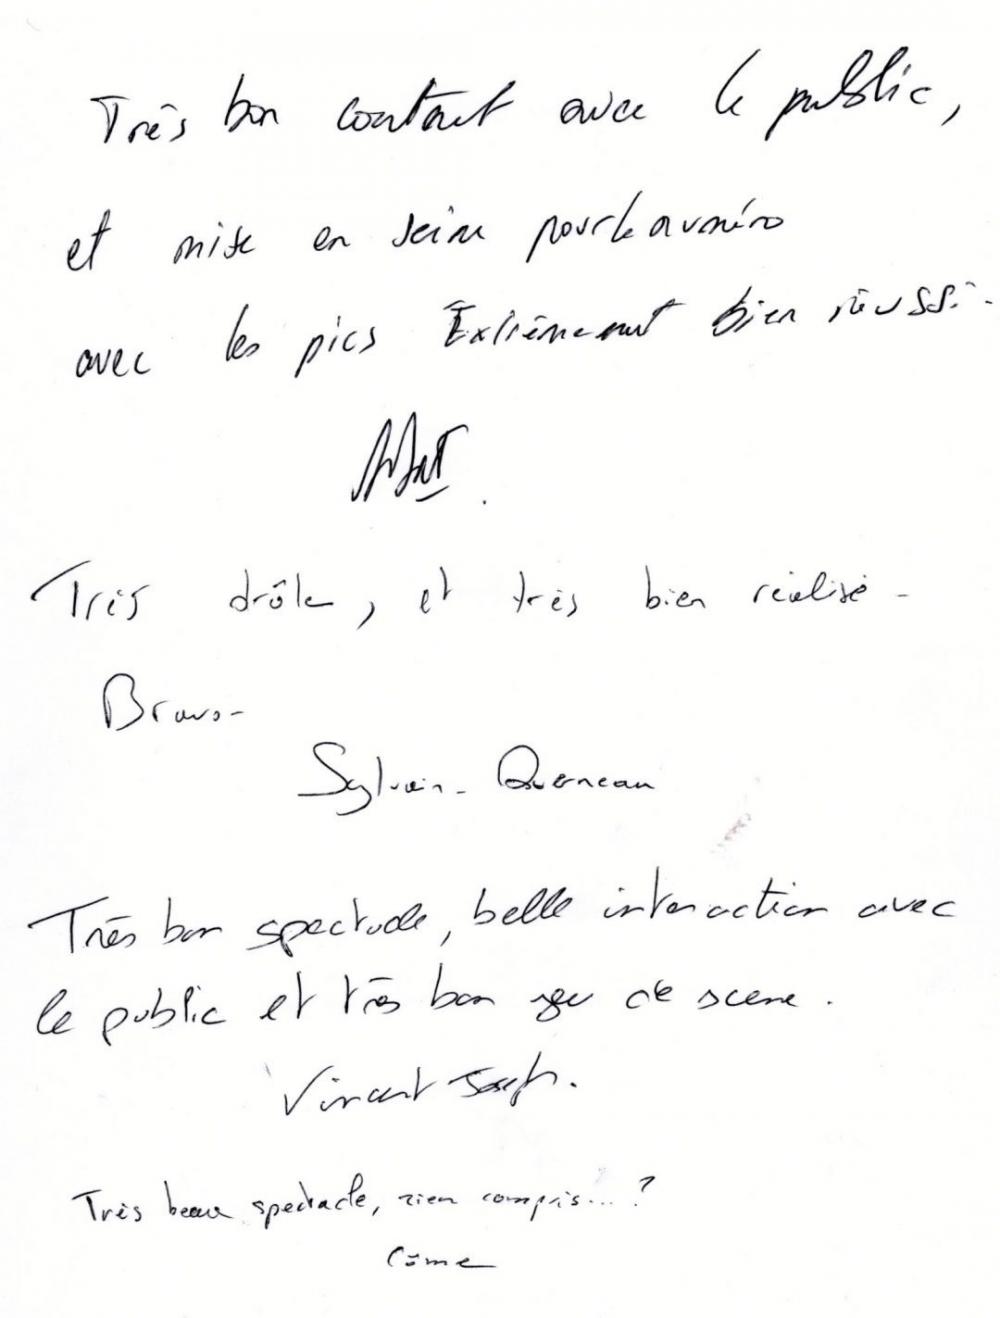 Très bon contact avec le public,
et mise en seine pour le numéro
avec les pics Extrêmement bien réussi.
Très drôle, et très bien réalisé -
Bravo -
Sylvain - Querneau
Très bon spectacle, belle interaction avec
le public et très bon jeu de scene.
Vincent Joseph.
Très beau spectacle, rien compris...?
Côme